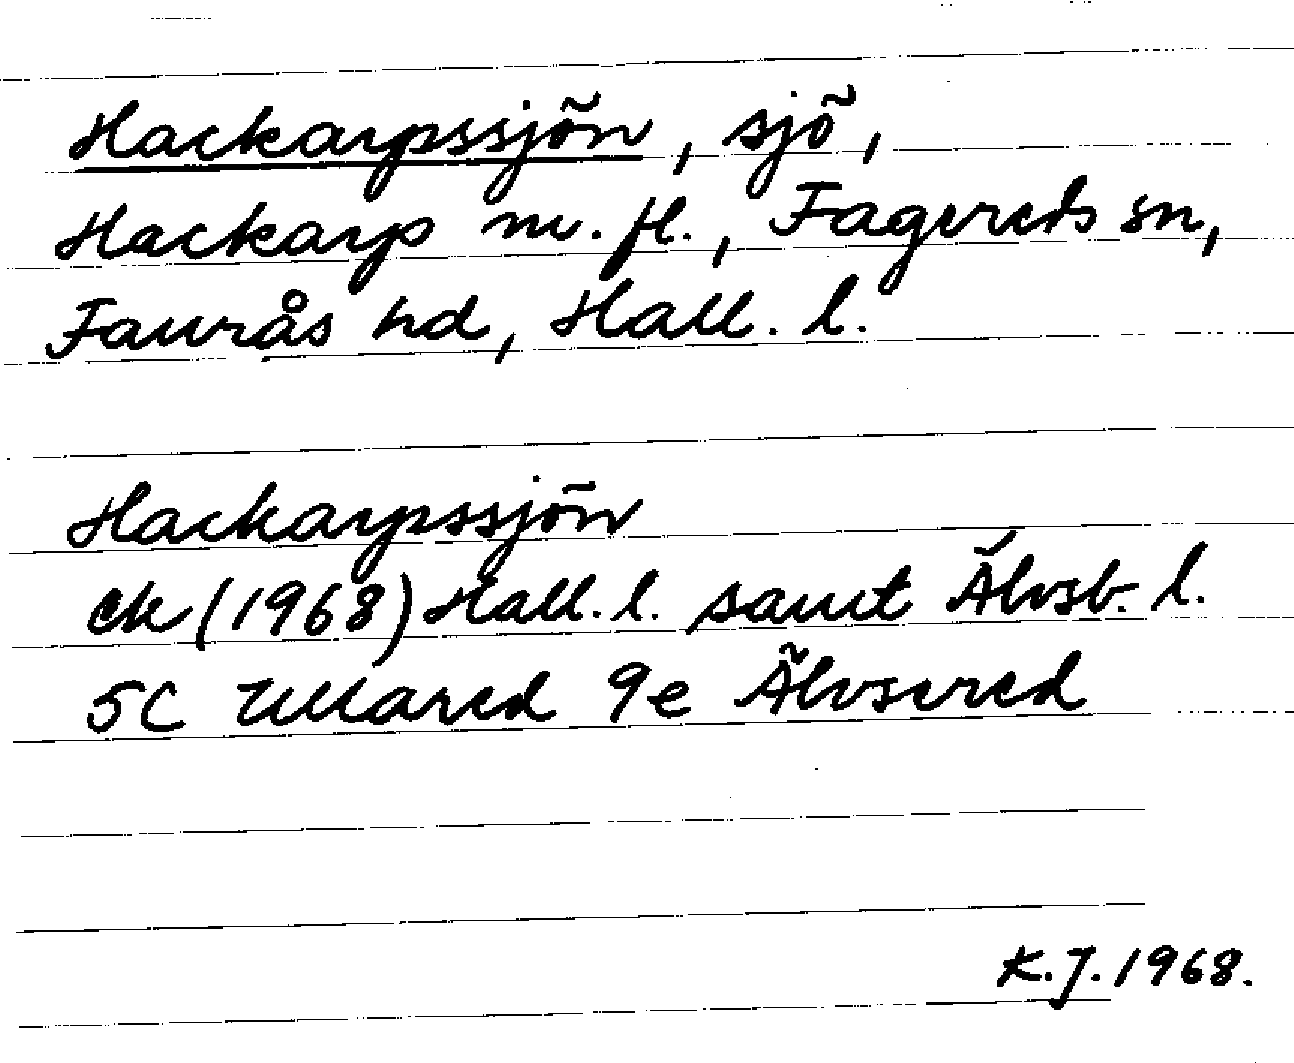 Hackarpssjön, sjö,
Hackarp m. fl., Fagereds sn,
Faurås hd, Hall. l.
Hackarpssjön
ek (1968) Hall. l. samt Älvsb. l.
5C Ullared 9e Älvsered
K.J. 1968.